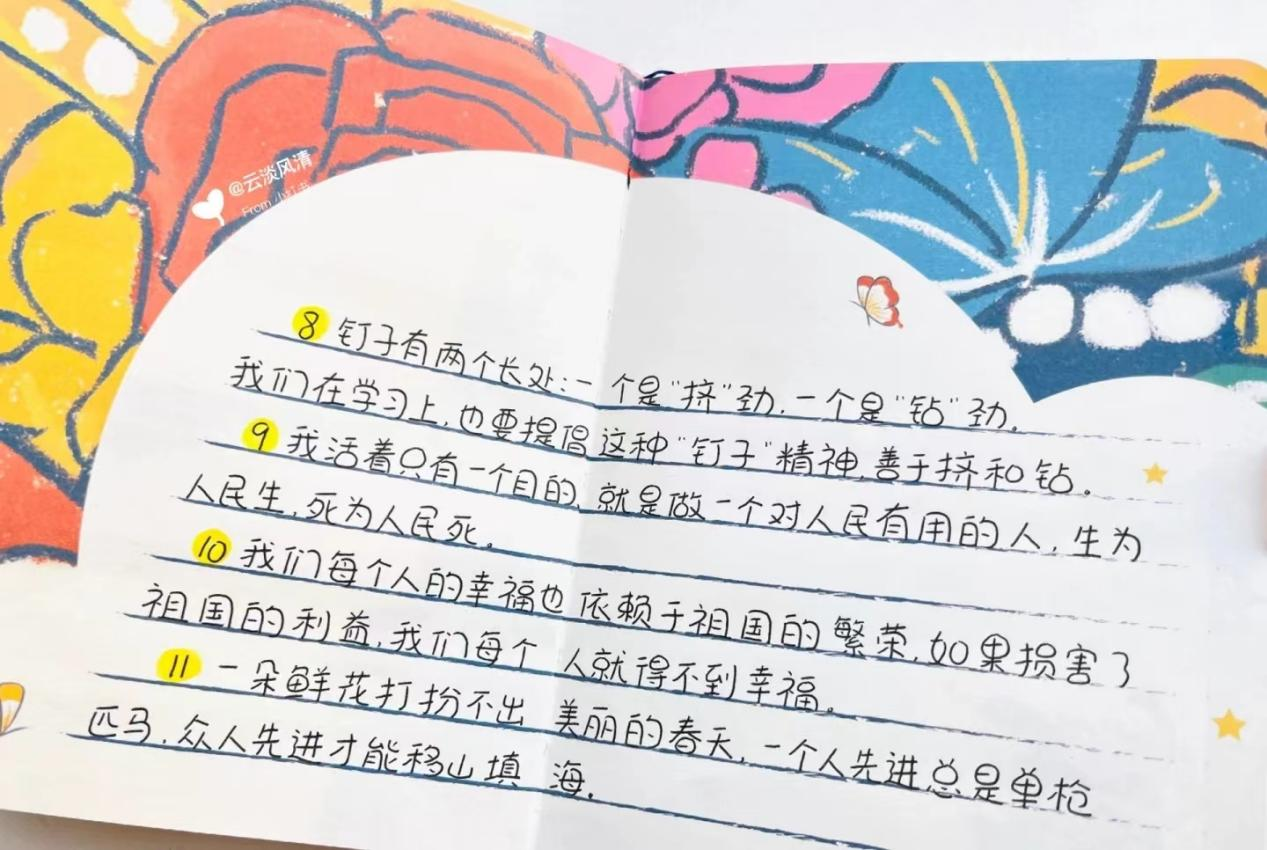 @云淡风清
From 小红书
8 钉子有两个长处:一个是"挤"劲.一个是"钻"劲.
我们在学习上,也要提倡这种"钉子"精神,善于挤和钻。
9 我活着只有一个目的、就是做一个对人民有用的人,生为
人民生,死为人民死。
10 我们每个人的幸福也依赖于祖国的繁荣,如果损害了
祖国的利益,我们每个人就得不到幸福。
11 一朵鲜花打扮不出美丽的春天,一个人先进总是单枪
匹马,众人先进才能移山填海.